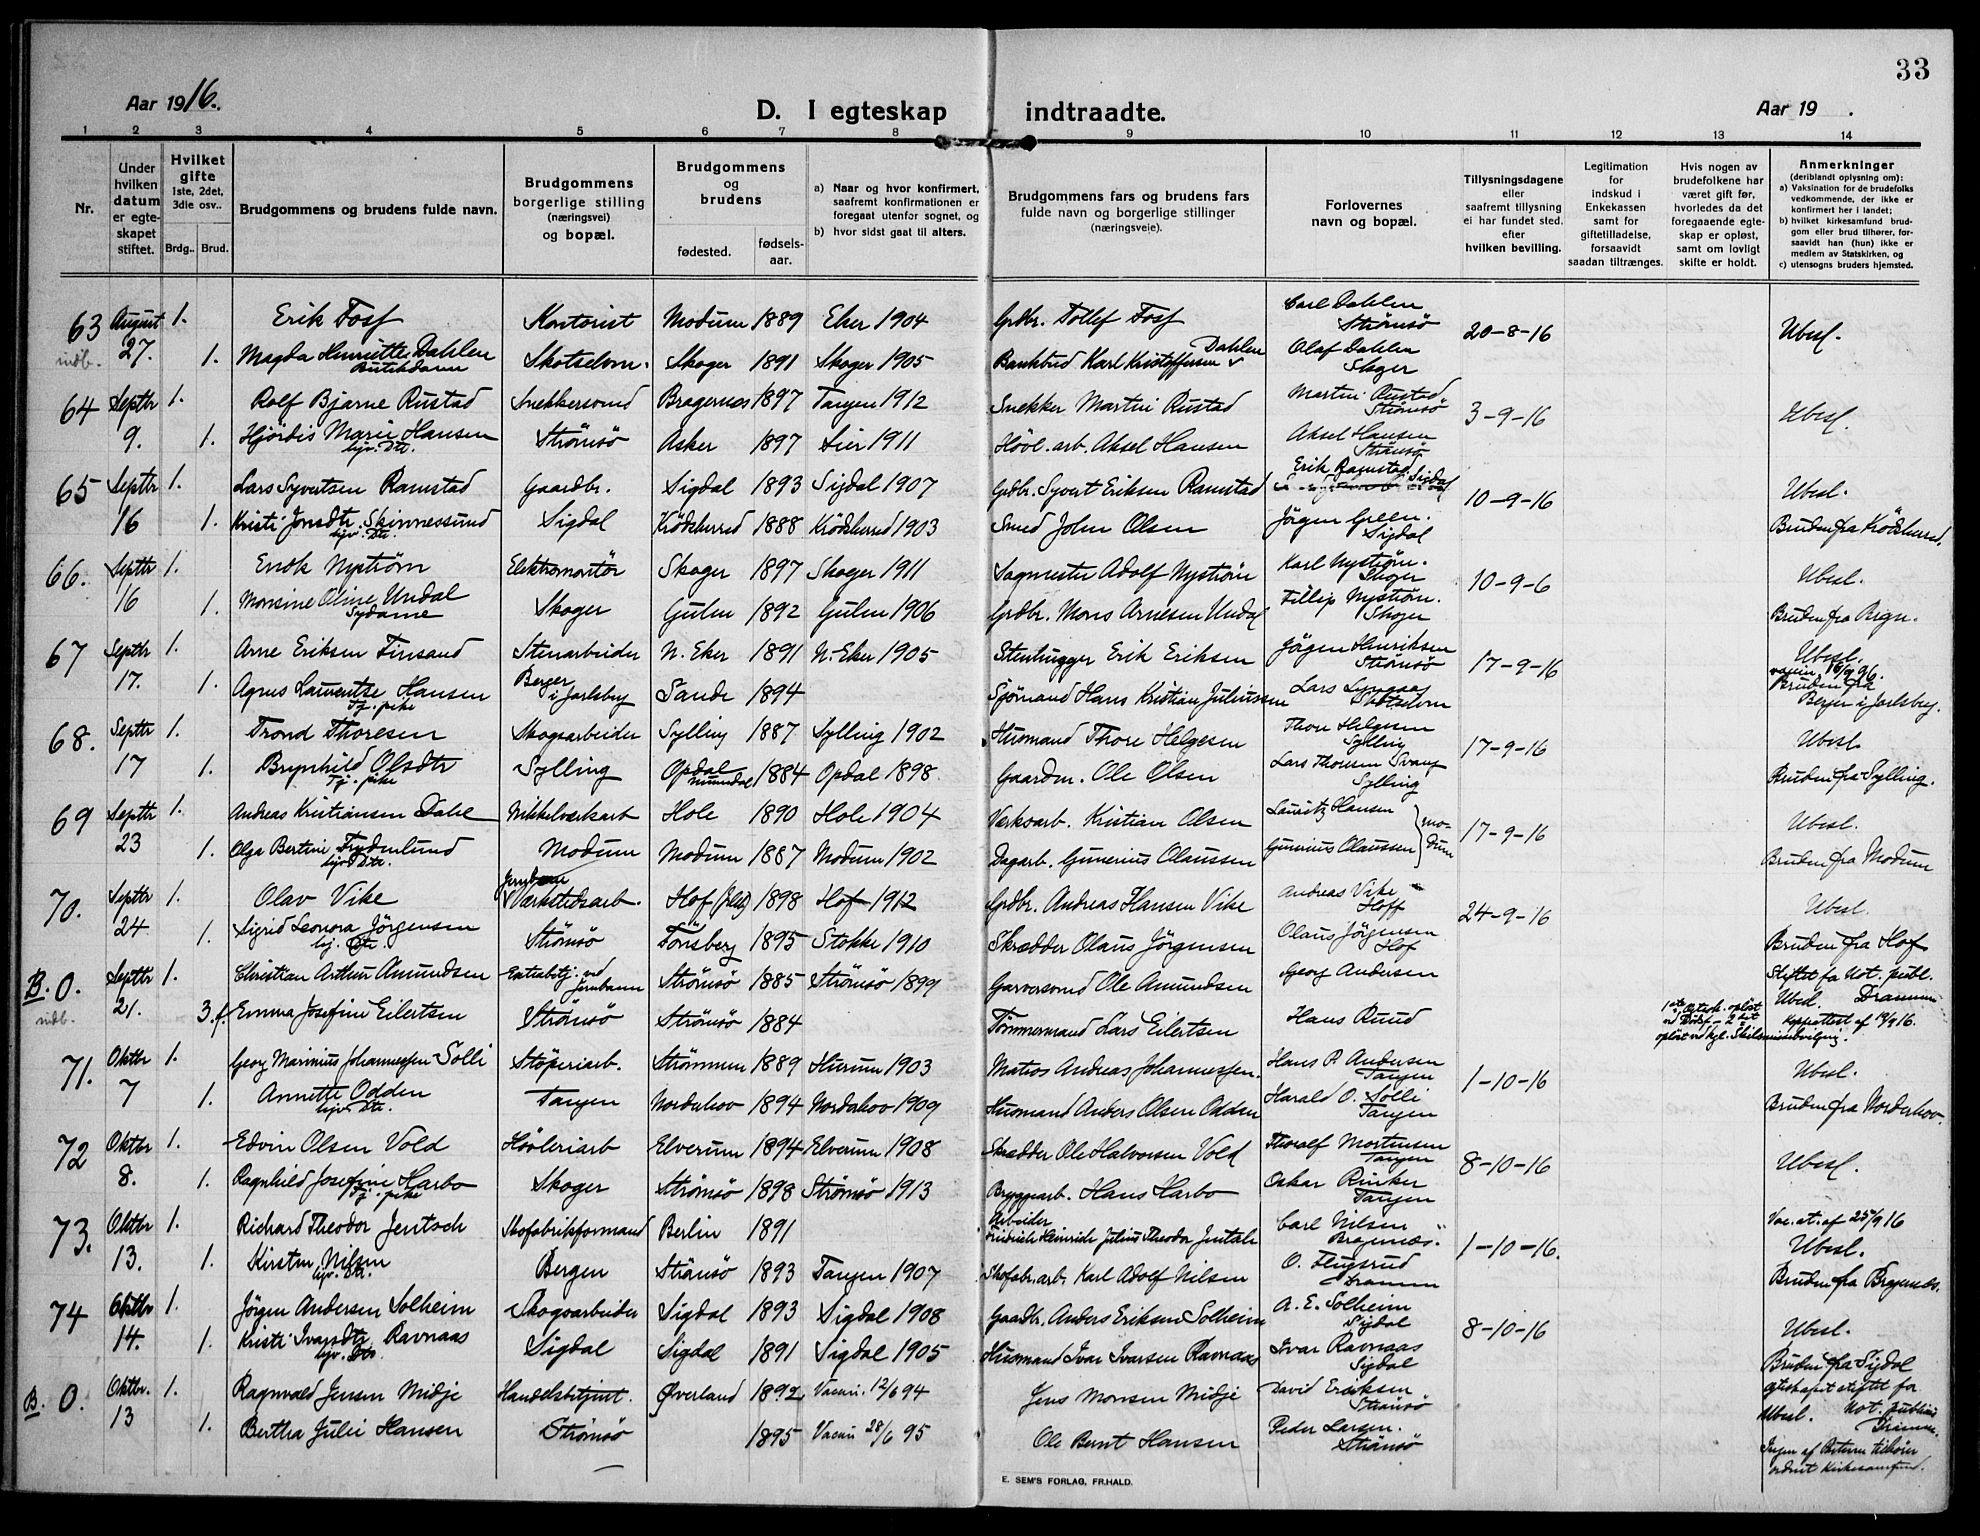 33
Aar 1916.
D. I egteskap indtraadte.
Aar 19 .
1 2 3 4 5 6 7 8 9 10 11 12 13 14
Nr.
Under hvilken datum er egteskapet stiftet.
Hvilket gifte 1ste, 2det, 3die osv..
Brdg.. Brud.
Brudgommens og brudens fulde navn.
Brudgommens borgerlige stilling (næringsvei) og bopæl.
Brudgommens og brudens
fødested. fødselsaar.
a) Naar og hvor konfirmert, saafremt konfirmationen er foregaat utenfor sognet, og
b) hvor sidst gaat til alters.
Brudgommens fars og brudens fars fulde navn og borgerlige stillinger (næringsveie).
Forlovernes navn og bopæl.
Tillysningsdagene eller saafremt tillysning ei har fundet sted. efter hvilken bevilling.
Legitimation for indskud i Enkekassen samt for giftetilladelse, forsaavidt saadan tiltrænges.
Hvis nogen av brudefolkene har været gift før, hvorledes da det foregaaende egteskap er opløst, samt om lovligt skifte er holdt.
Anmerkninger (deriblandt oplysning om):
a) Vaksination for de brudefolks vedkommende, der ikke er konfirmert her i landet;
b) hvilket kirkesamfund brudgom eller brud tilhører, forsaavidt han (hun) ikke er medlem av Statskirken, og
c) utensogns bruders hjemsted.
63 August 1. Erik Foss Kontorist Modum 1889 Eker 1904 Grdbr. Tollef Foss Carl Dahlen Strömsö 20-8-16 Ubesl.
indb. 27. 1. Magda Henriette Dahlen Butikdame Skotselven. Skoger 1891 Skoger 1905 Bankbud Karl Kristoffersen Dahlen Olaf Dahlen Skoger
64 Septbr 1. Rolf Bjarne Rustad Snekkersvend Bragernes 1897 Tangen 1912 Snekker Martin Rustad Martin Rustad Strömsö 3-9-16 Ubesl.
9. 1. Hjördis Marie Hansen hjv. Dtr. Strömsö Asker 1897 Lier 1911 Hövl. arb. Aksel Hansen Aksel Hansen Strömsö
65 Septbr 1. Lars Syvertsen Ramstad Gaardbr. Sigdal 1893 Sigdal 1907 Grdbr. Syvert Eriksen Ramstad Erik Ramstad Sigdal 10-9-16 Ubesl.
16 1. Kristi Jonsdtr. Skinnessund hjv. Dtr. Sigdal Krödsherred 1888 Krödsherred 1903 Smed John Olsen Jörgen Green. Sigdal Bruden fra Krödsherred.
66. Septbr 1. Enok Nyström Elektromontör Skoger 1897 Skoger 1911 Sagmester Adolf Nyström Karl Nyström. Skoger 10-9-6 Ubesl.
16 1. Monsine Oline Undal Sydame Skoger Gulen 1892 Gulen 1906 Grdbr. Mons Arnesen Undal Fillip Nyström. Skoger Bruden fra Bergn.
67 Septbr 1. Arne Eriksen Finsand Stenarbeider N. Eker 1891 N. Eker 1905 Stenhugger Erik Eriksen Jörgen Henriksen Strömsö 17-9-16 Ubesl.
17. 1. Agnes Lauentse Hansen Tj. pike Berger i Jarlsberg Sande 1894 Sjömand Hans Kristian Juliussen Lars Skotselven Bruden fra Berger i Jarlsberg.
68. Septbr 1. Trond Thoresen Skogsarbeider Sylling 1887 Sylling 1902 Husmand Thore Helgesen Thore Helgesen Sylling 17-9-16 Ubesl.
17 1. Brynhild Olsdtr Tj. pike Sylling Opdal Numedal 1884 Opdal 1898. Gaardm. Ole Olsen Lars Thoresen Svang Sylling Bruden fra Sylling.
69 Septbr 1. Andreas Kristiansen Dahl Nikkelverksarb Hole 1890 Hole 1904 Verksarb. Kristian Olsen Lauritz Hansen Modum 17-9-16 Ubesl.
23 1. Olga Bertine Frydenlund hjv. Dtr. Modum Modum 1887 Modum 1902 Dagarb. Gunerius Olaussen Gunerius Olaussen Bruden fra Modum
70. Septbr 1. Olav Vike Jernbane Værkstedsarb. Hof 1898 Hof 1912 Grdbr. Andreas Hansen Vike Andreas Vike Hoff 24-9-16 Ubesl.
24 1. Sigrid Leonora Jörgensen hj. Dtr Strömsö Tönsberg 1895 Stokke 1910 Skrædder Olaus Jörgensen Olaus Jörgensen Hof Bruden fra Hof
B. O. Septbr 1. Christian Arthur Amundsen Extrabtj. ved Jernbanen Strömsö 1885 Strömsö 1899 Garversvend Ole Amundsen Georg Andersen Stiftet fa Not. publ. Drammen
indb. 21. 3. f. Emma Josefine Eilertsen Strömsö Strömsö 1884 Tömmermand Lars Eilertsen Hans Ruud Ubesl.
71. Oktbr 1. Georg Marinius Johannessen Solli Stöperiarb. Strömmen 1889 Hurum 1903 Matros Andreas Johannessen. Hans P. Andersen Tangen 1-10-16 Ubesl.
7 1. Annette Odden hjv. Dtr. Tangen Norderhov 1894 Norderhov 1909 Husmand Anders Olsen Odden Harald O. Solli Tangen Bruden fra Norderhov.
72 Oktbr 1. Edvin Olsen Vold Hövleriarb Elverum 1894 Elverum 1908 Skrædder Ole Halvorsen Vold Thoralf Mortensen Tangen 8-10-16 Ubesl.
8. 1. Ragnhild Josefine Harbo Tj. pike Skoger Strömsö 1898 Strömsö 1913 Bryggearb. Hans Harbo Oskar Rinker Tangen
73. Oktbr 1. Richard Theodor Jentsch Skofabrikformand Berlin 1891 Arbeider Friedrich Heinrich Julius Theodor Jentsch Carl Nilsen Bragernæs. 1-10-16. Vac. at. af 25/9 16 Ubesl.
13. 1. Kirsten Nilsen hjv. Dtr. Bergen Strömsö 1893 Tangen 1907 Skofabr. arb. Karl Adolf Nilsen O. Flugsrud Drammen Bruden fra Bragernæs.
74 Oktbr 1. Jörgen Andersen Solheim Skogsarbeider Sigdal 1893 Sigdal 1908 Gaardbr. Anders Eriksen Solheim A. E. Solheim Sigdal 8-10-16 Ubesl.
14. 1. Kristi Ivarsdtr Ravnaas hjv. Dtr. Sigdal Sigdal 1891 Sigdal 1905 Husmand Ivar Ivarsen Ravnaas Ivar Ravnaas Sigdal Bruden fra Sigdal
B. O. Oktbr. 1. Ragnvald Jensen Midje Handelsbetjent. Överland 1892 Vaccin. 12/6 94 Jens Monsen Midje David Eriksen Strömsö egteskapet stiftet for Not. publicus Drammen. Ubesl.
13 1. Bertha Julie Hansen Strömsö 1895 Vaccin 28/6 95 Ole Bernt Hansen Peder Larsen. Strömsö Ingen af Parterne tilhörer ordnet Kirkesamfund.
E. SEM'S FORLAG, FR.HALD.